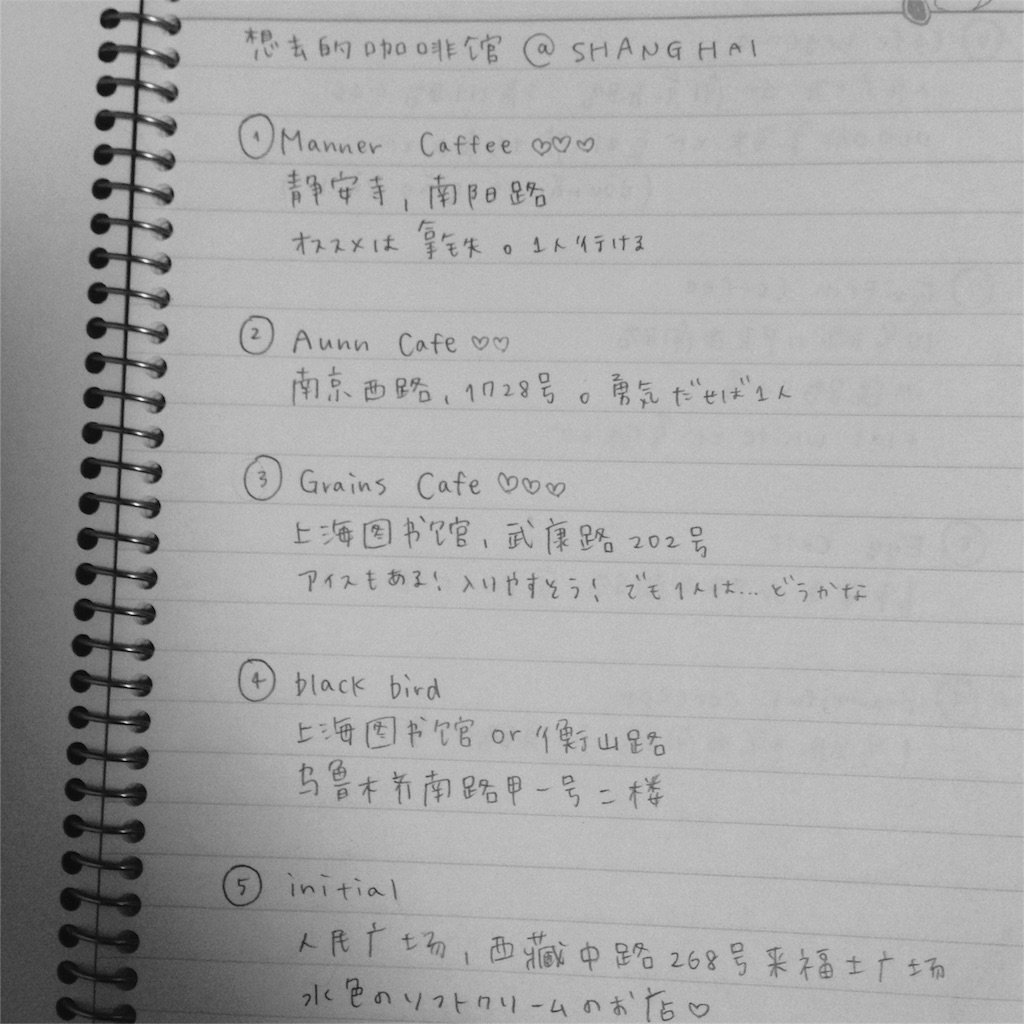 想去的咖啡馆 @ SHANGHAI
① Manner Caffee ♡♡♡
静安寺, 南阳路
オススメは 拿铁。1人行ける
② Aunn Cafe ♡♡
南京西路, 1728号。勇気だせば1人
③ Grains Cafe ♡♡♡
上海图书馆, 武康路202号
アイスもある! 入りやすそう! でも1人は…どうかな
④ black bird
上海图书馆 or 衡山路
乌鲁木齐南路甲一号二楼
⑤ initial
人民广场, 西藏中路268号来福士广场
水色のソフトクリームのお店♡